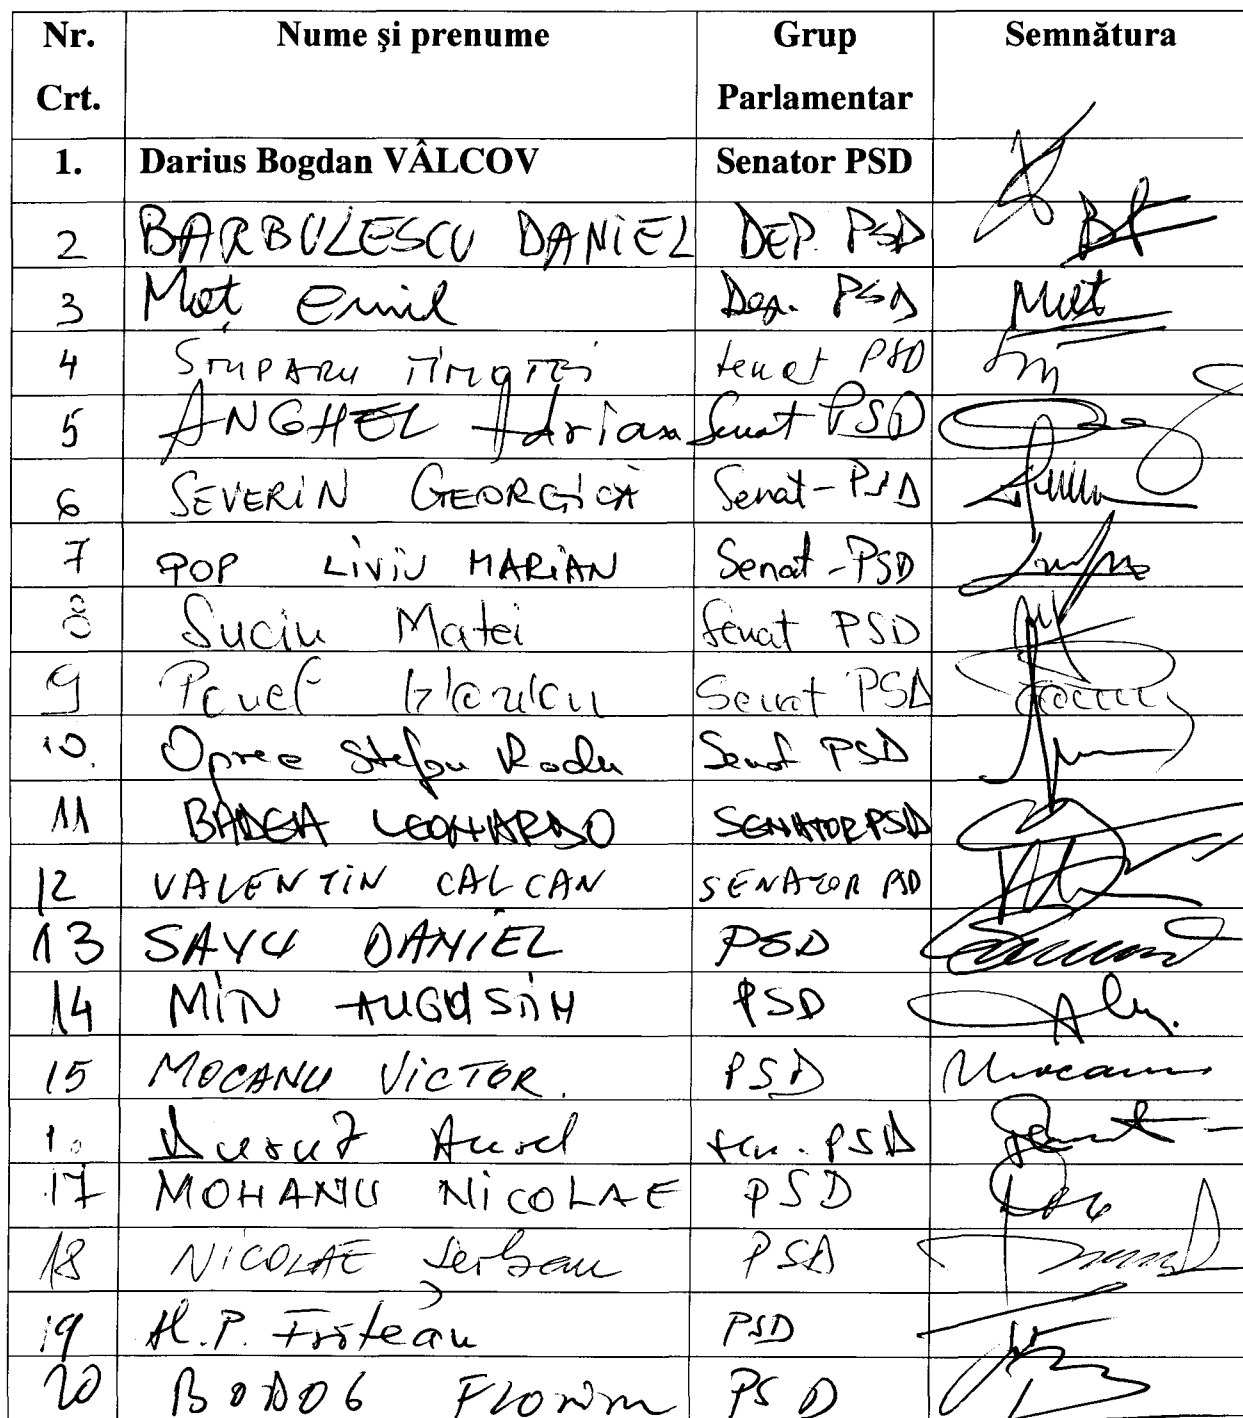 Nr. Crt. Nume și prenume Grup Parlamentar Semnătura
1. Darius Bogdan VÂLCOV Senator PSD
2 BARBULESCU DANIEL DEP. PSD
3 Moț Emil Dep. PSD
4 STUPARU TIMOTEI senat PSD
5 ANGHEL Adrian Senat PSD
6 SEVERIN GEORGICĂ Senat-PSD
7 POP LIVIU MARIAN Senat-PSD
8 Suciu Matei Senat PSD
9 Senat PSD
10. Oprea Stefan Radu Senat PSD
11 BADEA LEONARDO SENATOR PSD
12 VALENTIN CALCAN SENATOR PSD
13 SAVU DANIEL PSD
14 MITU AUGUSTIN PSD
15 MOCANU VICTOR. PSD Mocanu
Aurel sen. PSD
17 MOHANU NICOLAE PSD
18 NICOLAE Serban PSD
19 PSD
20 Florin PSD